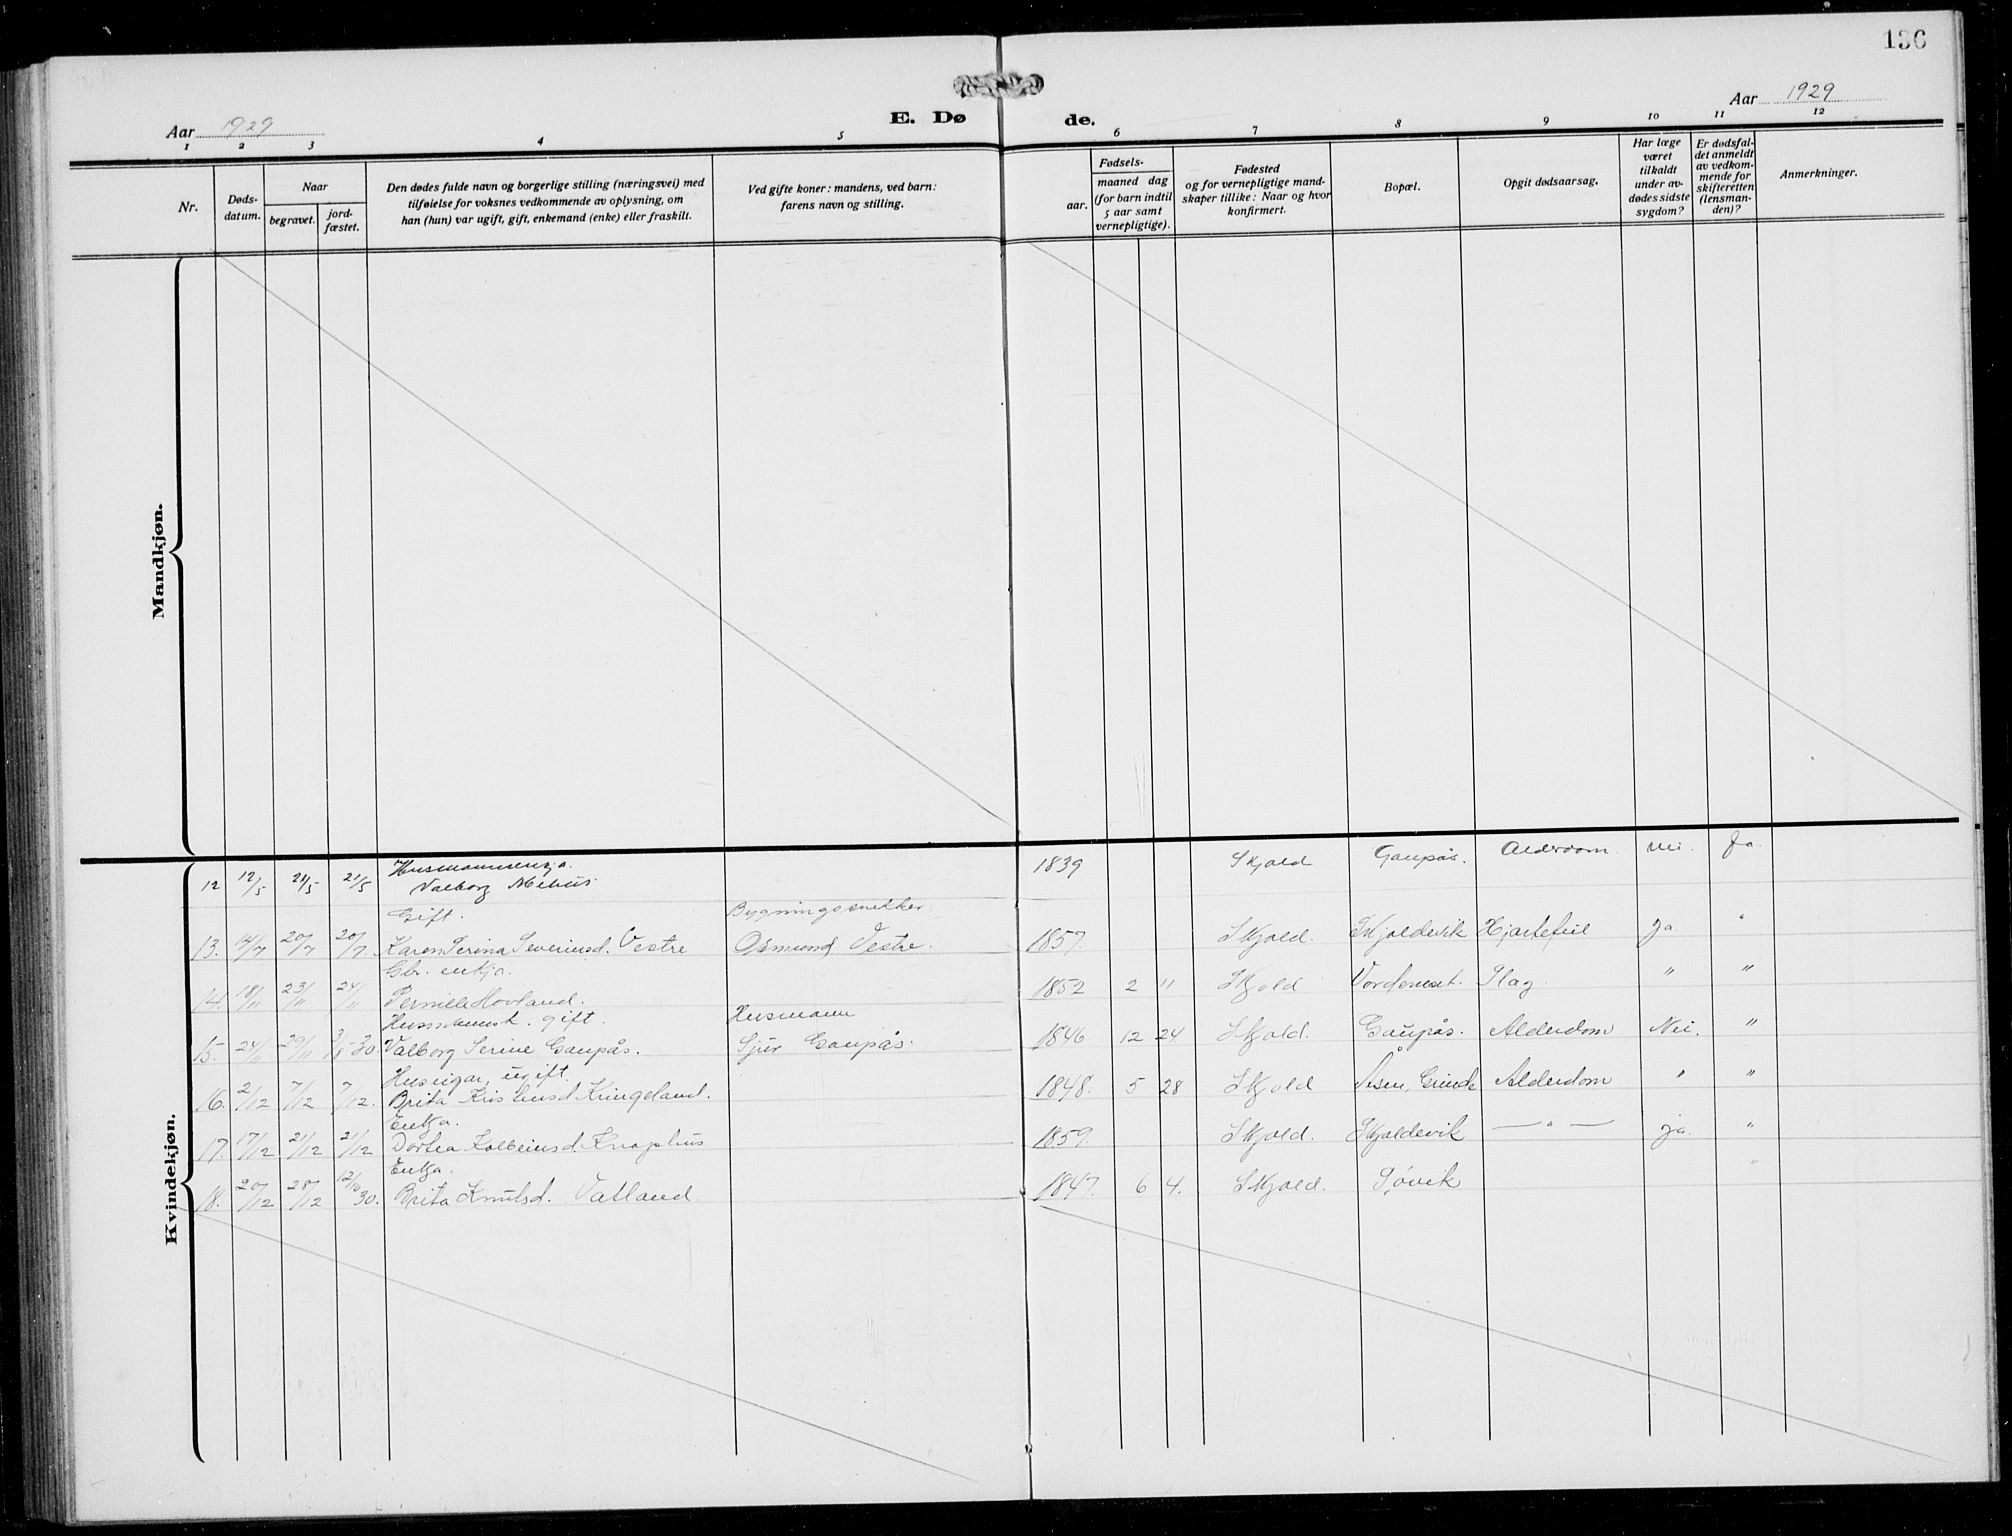 136
Aar 1929
E. Dø
de.
Aar 1929
1 2 3 4 5 6 7 8 9 10 11 12
Nr.
Døds-
datum.
Naar
begravet.
jord-
fæstet.
Den dødes fulde navn og borgerlige stilling (næringsvei) med
tilføielse for voksnes vedkommende av oplysning, om
han (hun) var ugift, gift, enkemand (enke) eller fraskilt.
Ved gifte koner: mandens, ved barn:
farens navn og stilling.
Fødsels-
aar.
maaned dag
(for barn indtil
5 aar samt
vernepligtige).
Fødested
og for vernepligtige mand-
skaper tillike: Naar og hvor
konfirmert.
Bopæl.
Opgit dødsaarsag.
Har læge
været
tilkaldt
under av-
dødes sidste
sygdom?
Er dødsfal-
det anmeldt
av vedkom-
mende for
skifteretten
(lensman-
den)?
Anmerkninger.
Mandkjøn.
Kvindekjøn.
Husmannsenkja.
12 12/5 21/5 21/5 Valborg Mehus 1839 Skjold Gaupås. Alderdom nei. Ja.
Gift. Bygningssnikker
13. 14/7 20/7 20/7. Karen Serina Severinsd. Vestre Osmund Vestre. 1857. Skjold. Skjoldevik Hjartefeil ja "
Gbr. enkja.
14. 18/11 23/11 24/11 Pernille Hovland. 1852 2 11 Skjold Vordeneset. Slag " "
gift. Husmann
15. 24/11 29/11 30. Valborg Serine Gaupås. Sjur Gaupås. 1846 12 24 Skjold. Gaupås. Alderdom Nei. "
Huseigar, ugift.
16. 2/12 7/12 7/12. Brita Kringeland. 1848. 5 28 Skjold Åsen, Grinde Alderdom " "
Enkja.
17. 17/12 21/12 21/12 Dortea Kolbeinsd. Knapphus 1859. Skjold. Skjoldevik — " — ja. "
Enkja.
18. 20/12 28/12 12/10 30. Brita Knutsd. Vatland 1847. 6 4. Skjold. Søvik "